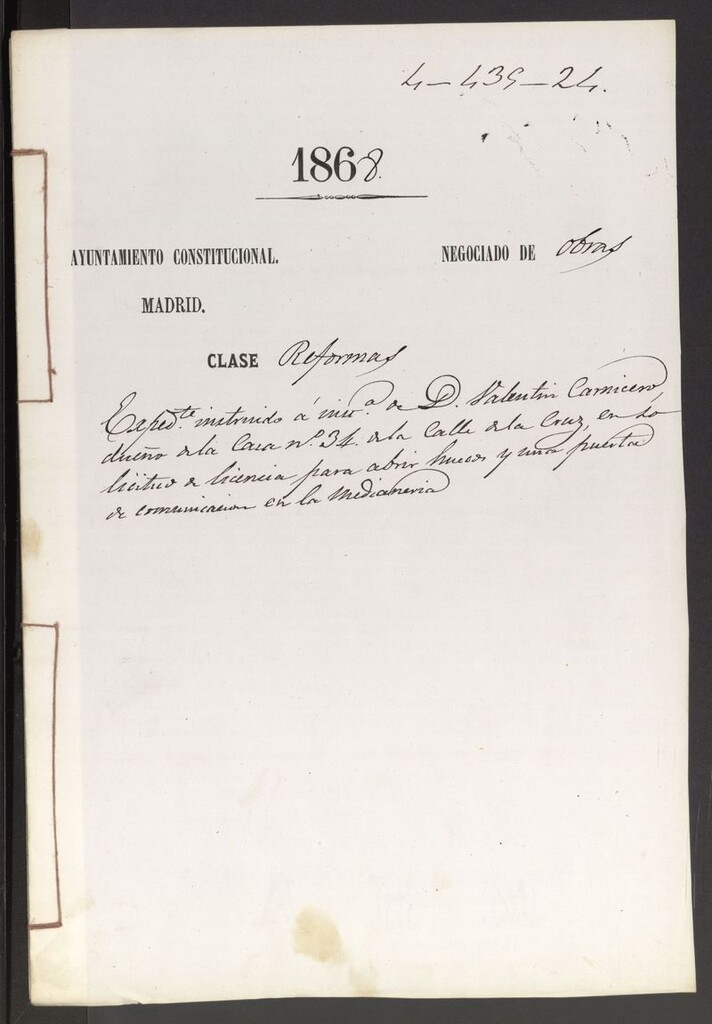 4-439-24.
1868.
AYUNTAMIENTO CONSTITUCIONAL.
NEGOCIADO DE obras
MADRID.
CLASE Reformas
Exped.te instruido á inst.a de D. Valentin Carnicero,
dueño de la Casa nº. 34. de la Calle de la Cruz, en so
licitud de licencia para abrir huecos y una puerta
de comunicacion en la medianeria